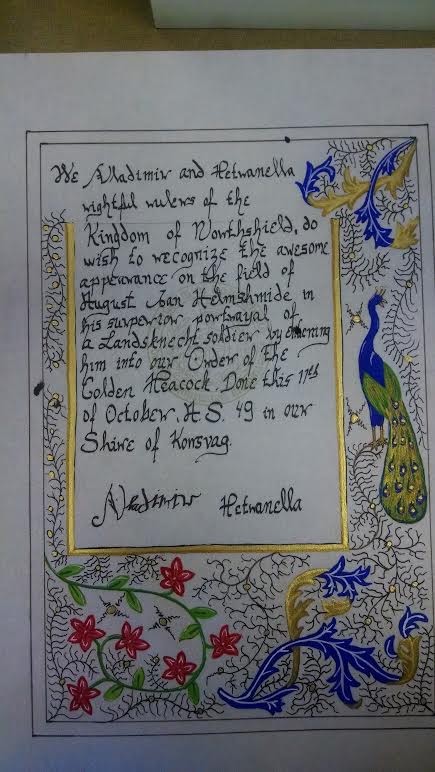 We Vladimir and Petranella
rightful rulers of the
Kingdom of Northshield, do
wish to recognize the awesome
appearance on the field of
August van Helmshmide in
his superior portrayal of
a Landsknecht soldier by
him into our Order of the
Golden Peacock. Done this 11th
of October, A.S. 49 in our
Shire of Korsvag.
Vladimir Petranella